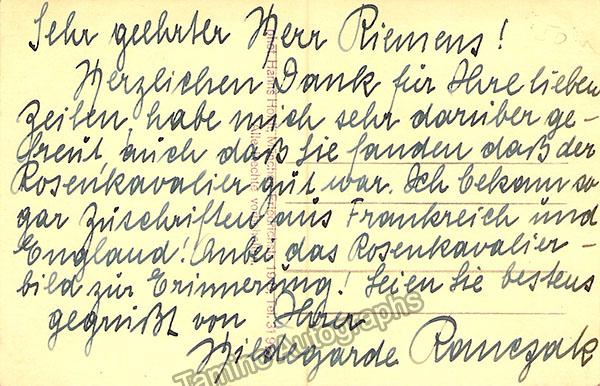 Sehr geehrter Herr Riemens!
Herzlichen Dank für Ihre lieben
Zeilen, habe mich sehr darüber ge-
freut, auch daß Sie fanden daß der
Rosenkavalier gut war. Ich bekam so
gar Zuschriften aus Frankreich und
England! Anbei das Rosenkavalier-
bild zur Erinnerung! Seien Sie bestens
gegrüßt von Ihrer
Hildegarde Ranczak
Tamino Autographs